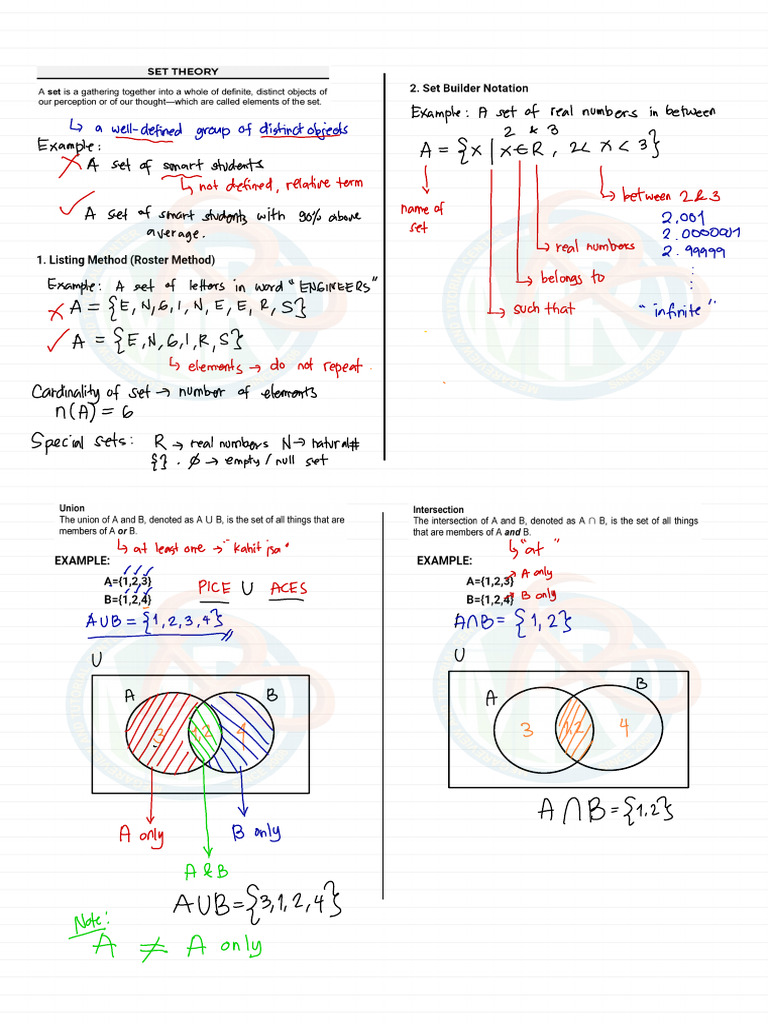 SET THEORY
A set is a gathering together into a whole of definite, distinct objects of
our perception or of our thought—which are called elements of the set.
↳ a well-defined group of distinct objects
Example:
✗ A set of smart students
↳ not defined, relative term
✓ A set of smart students with 90% above
average.
1. Listing Method (Roster Method)
Example: A set of letters in word "ENGINEERS"
✗ A = {E, N, G, I, N, E, E, R, S}
✓ A = {E, N, G, I, R, S}
↳ elements → do not repeat.
Cardinality of set → number of elements
n(A) = 6
Special sets: R → real numbers N → natural #
{} . ∅ → empty / null set
2. Set Builder Notation
Example: A set of real numbers in between
2 & 3
A = {x | x ∈ R, 2 < x < 3}
name of
set
between 2 & 3
2.001
2.0000001
2.99999
:
:
"infinite"
real numbers
belongs to
such that
Union
The union of A and B, denoted as A ∪ B, is the set of all things that are
members of A or B.
↳ at least one → "kahit isa"
EXAMPLE:
A={1,2,3}
B={1,2,4}
PICE ∪ ACES
A∪B = {1, 2, 3, 4}
U
A B
3 1,2 4
A only B only
A & B
A∪B = {3, 1, 2, 4}
Note:
A ≠ A only
Intersection
The intersection of A and B, denoted as A ∩ B, is the set of all things
that are members of A and B.
↳ "at"
EXAMPLE:
A={1,2,3} → A only
B={1,2,4} → B only
A∩B = {1, 2}
U
A B
3 1,2 4
A ∩ B = {1,2}